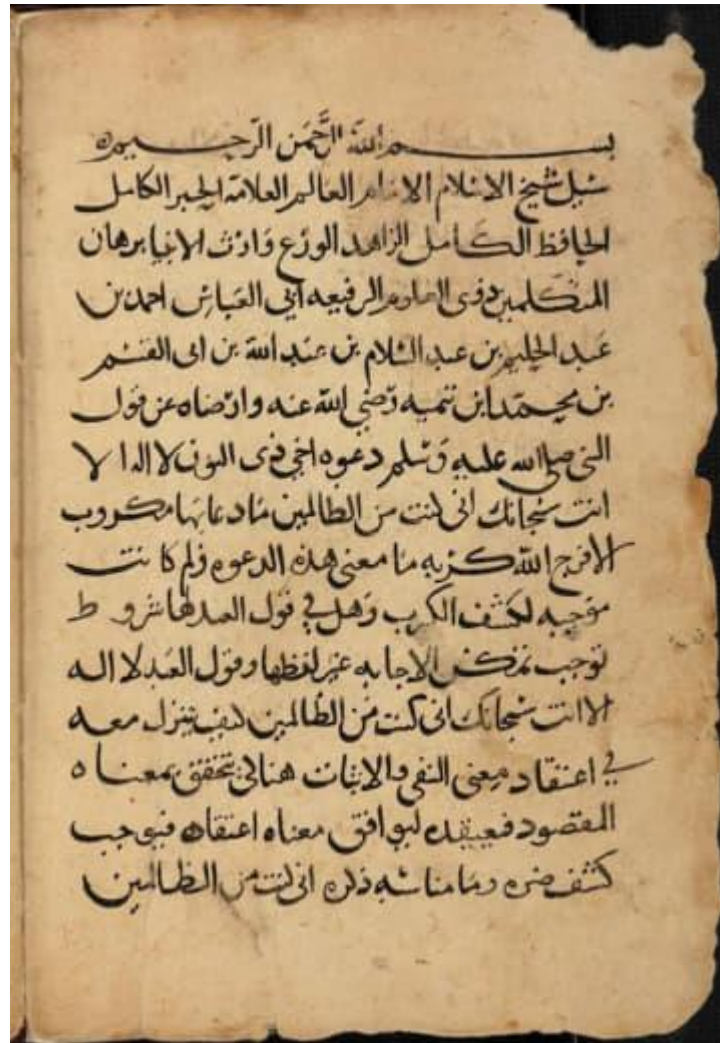 بسم الله الرحمن الرحيم
سئل شيخ الاسلام الامام العالم العلامة الحبر الكامل
الحافظ الكامل الزاهد الورع وارث الانبيا برهان
المتكلمين ذوي العلوم الرفيعه ابي العباس احمد بن
عبد الحليم بن عبد السلام بن عبد الله بن ابى القسم
بن محمد ابن تيميه رضي الله عنه وارضاه عن قول
النبي صلى الله عليه وسلم دعوه اخي ذى النون لا اله الا
انت سبحانك انى كنت من الظالمين ما دعا بها مكروب
الا فرج الله كربه ما معنى هذه الدعوه ولم كانت
موجبه لكشف الكرب وهل في قول العبد لها شروط
توجب الاجابه غير لفظها وقول العبد لا اله
الا انت سبحانك انى كنت من الظالمين كيف تنزل معه
في اعتقاد معنى النفي والاثبات تتحقق بمعناه
المقصود ليوافق معناه اعتقاده فيوجب
كشف ضره وما مناسبه ذكره انى كنت من الظالمين